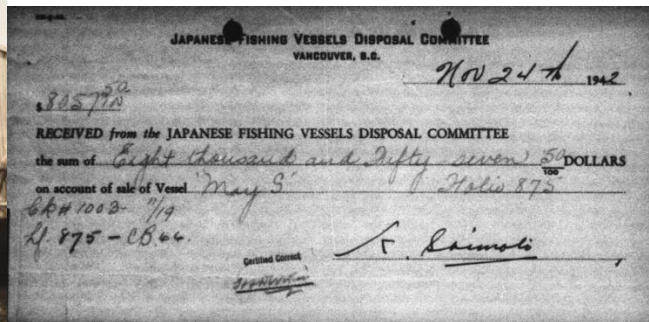 JAPANESE FISHING VESSELS DISPOSAL COMMITTEE
VANCOUVER, B.C.
Nov 24th 1942
$8057 50
RECEIVED from the JAPANESE FISHING VESSELS DISPOSAL COMMITTEE
the sum of Eight thousand and Fifty seven 50/100 DOLLARS
on account of sale of Vessel "May S" Folio 875
Ck# 1003- 11/19
Lf. 875 - CB 66.
Certified Correct